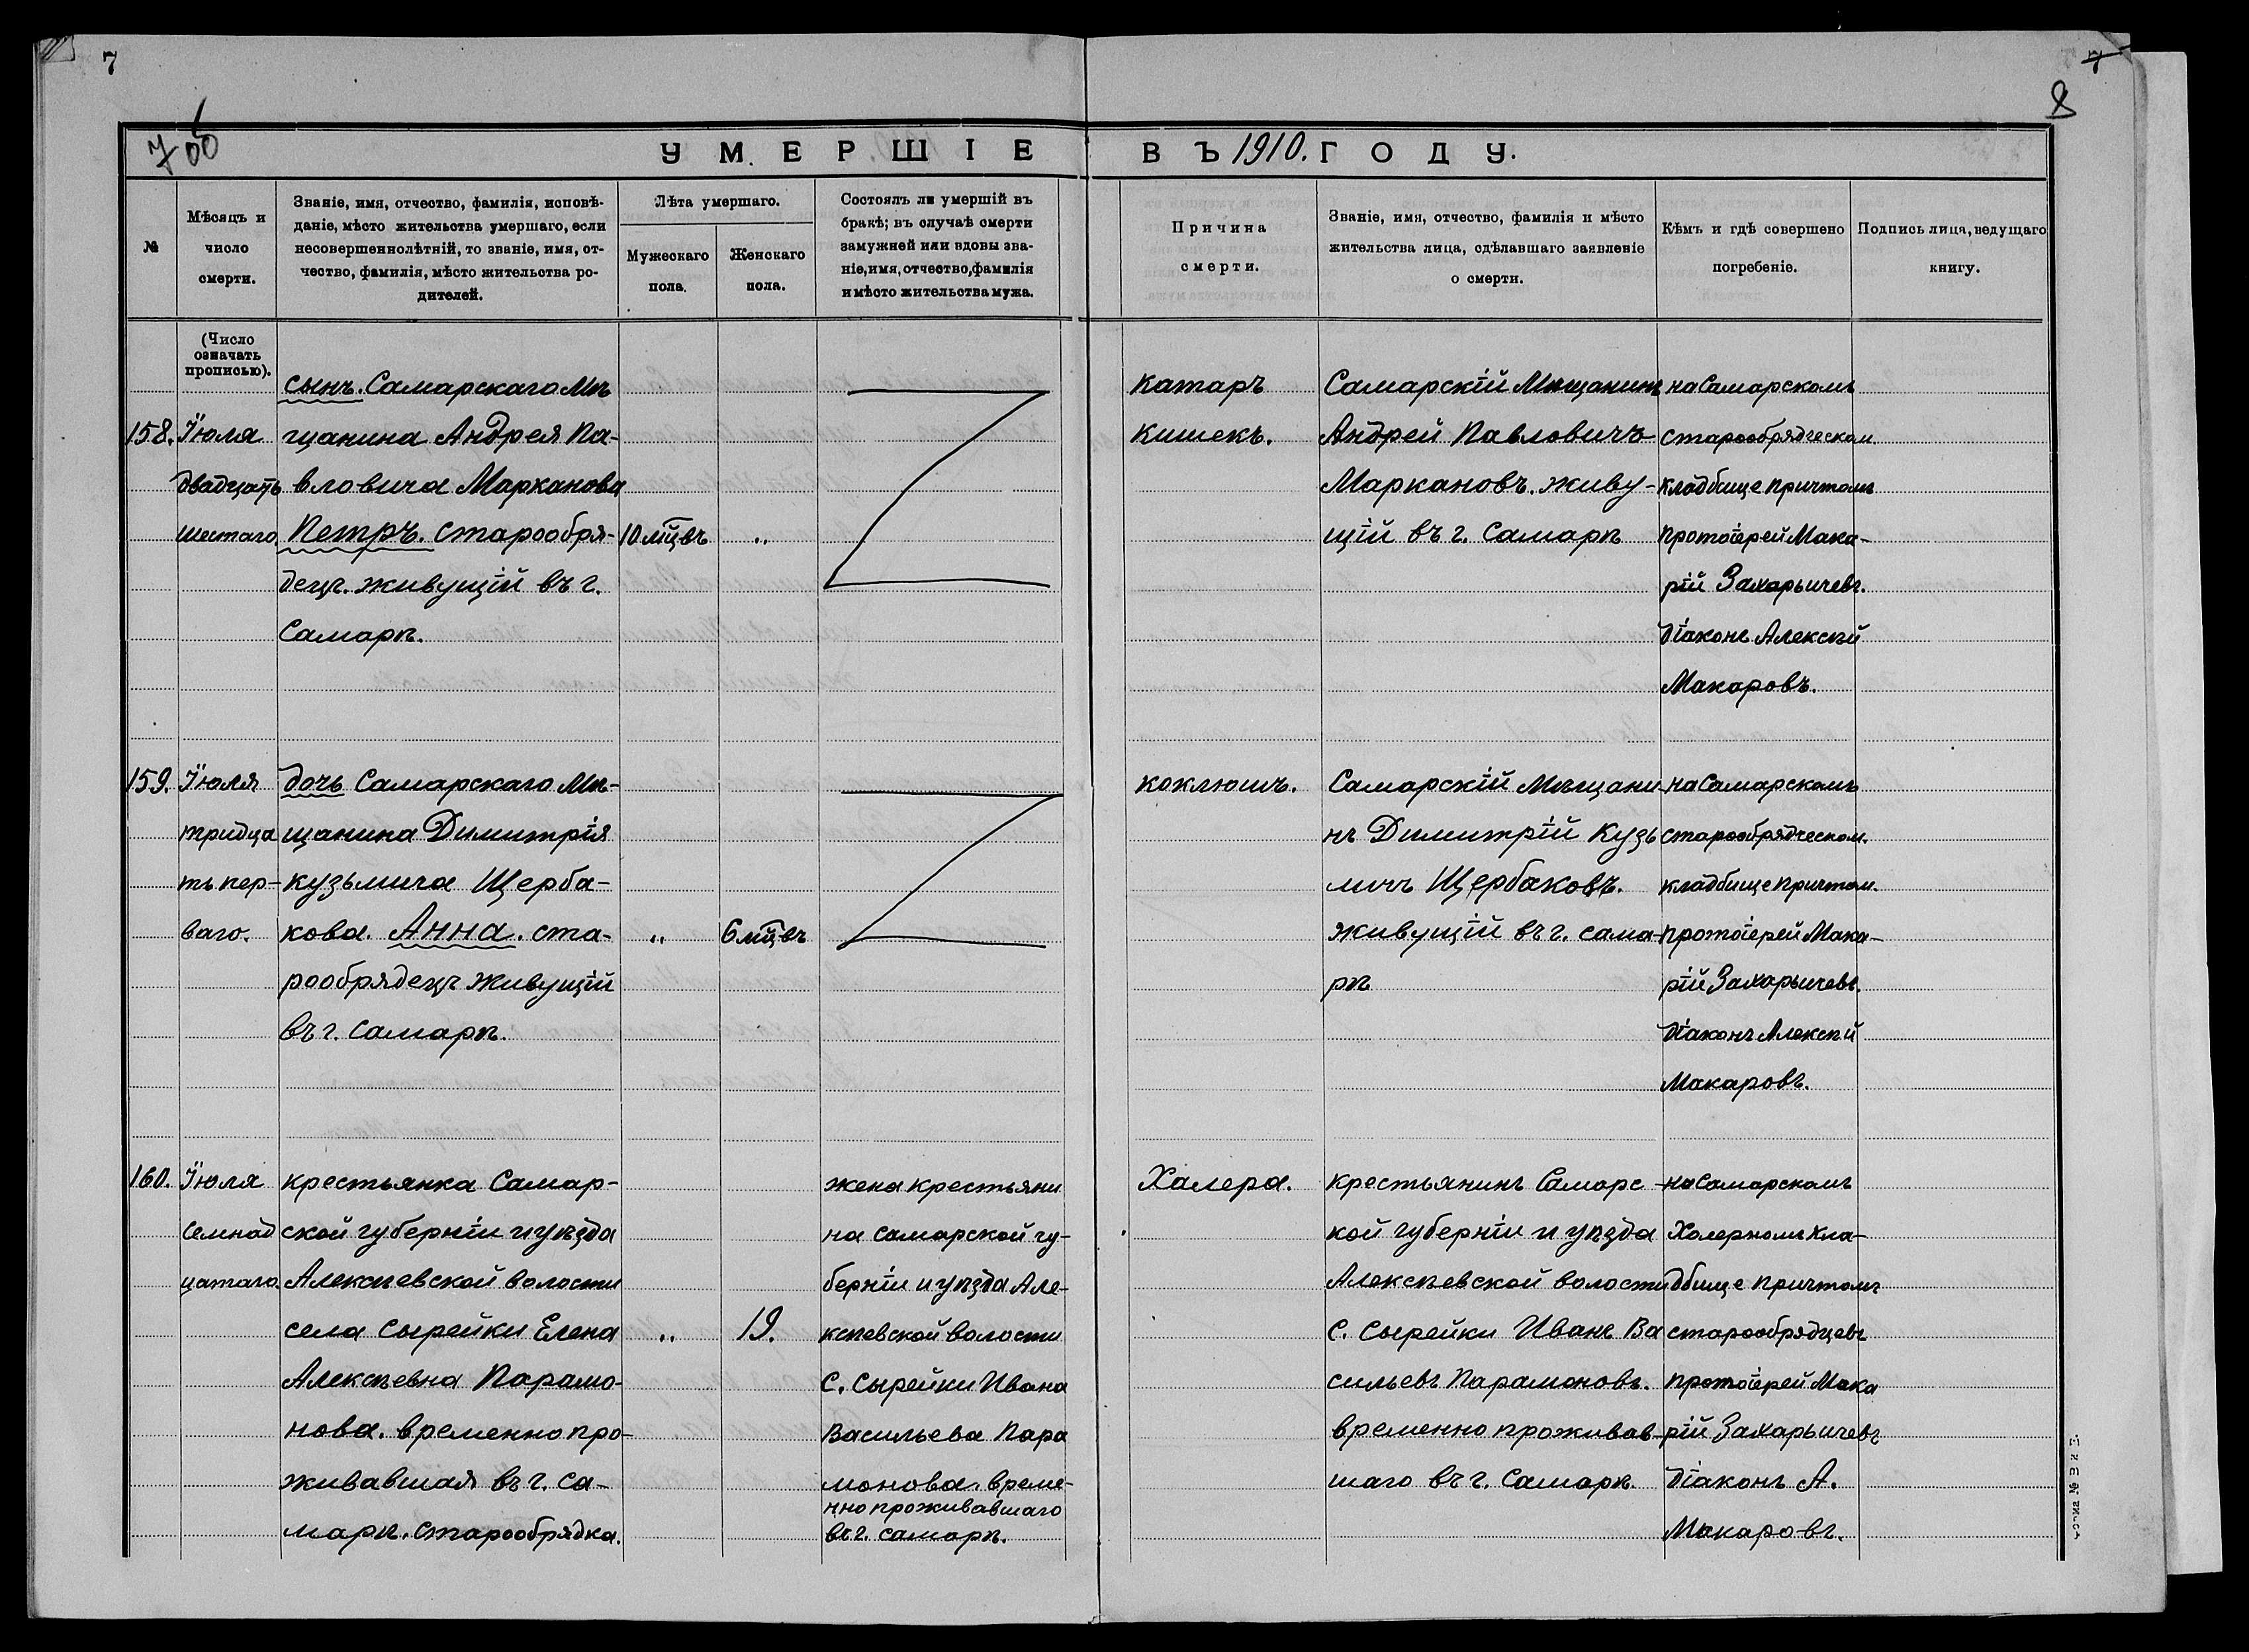 7
7
8
7 об
УМЕРШІЕ ВЪ 1910. ГОДУ.
№
Мѣсяцъ и
число
смерти.
Званіе, имя, отчество, фамилія, исповѣ-
даніе, мѣсто жительства умершаго, если
несовершеннолѣтній, то званіе, имя, от-
чество, фамилія, мѣсто жительства ро-
дителей.
Лѣта умершаго.
Мужескаго
пола.
Женскаго
пола.
Состоялъ ли умершій въ
бракѣ; въ случаѣ смерти
замужней или вдовы зва-
ніе, имя, отчество, фамилія
и мѣсто жительства мужа.
Причина
смерти.
Званіе, имя, отчество, фамилія и мѣсто
жительства лица, сдѣлавшаго заявленіе
о смерти.
Кѣмъ и гдѣ совершено
погребеніе.
Подпись лица, ведущаго
книгу.
(Число
означать
прописью).
158.
Іюля
двадцать
шестаго
сынъ. Самарскаго Мѣ
щанина Андрея Па-
вловича Марканова
Петръ. старообря-
децъ. живущій въ г.
Самарѣ.
10 мц̄въ
„
катаръ
кишекъ.
Самарскій Мѣщанинъ
Андрей Павловичъ
Маркановъ. живу-
щій въ г. Самарѣ
на Самарскомъ
старообрядческом
кладбище причтомъ
протоіерей Мака-
рій Захарычевъ.
діаконъ Алексѣй
Макаровъ.
159.
Іюля
тридца
ть пер-
ваго.
дочь Самарскаго Мѣ-
щанина Димитрія
кузьмича Щерба-
кова. Анна. ста-
рообрядецъ живущій
въ г. Самарѣ.
„
6 мц̄въ
коклюшъ.
Самарскій Мѣщани
нъ Димитрій Кузь
мичъ Щербаковъ.
живущій въ г. сама-
рѣ
на Самарскомъ
старообрядческом.
кладбище причтом.
протоіерей Мака-
рій Захарычевъ.
діаконъ Алексѣй
Макаровъ.
160.
Іюля
семнад
цатаго
крестьянка Самар-
ской губерніи и уѣзда
Алексѣевской волости
села Сырейки Елена
Алексѣевна Парамо-
нова. временно про-
живавшая въ г. Са-
марѣ. старообрядка.
„
19.
жена крестьяни
на самарской гу-
берніи и уѣзда Але-
ксѣевской волости
С. Сырейки Ивана
Васильева Пара
монова. време-
нно проживавшаго
въ г. самарѣ.
Халера.
крестьянинъ Самарс-
кой губерніи и уѣзда
Алексѣевской волости
С. Сырейки Иванъ Ва
сильевъ Парамоновъ.
временно проживав-
шаго въ г. Самарѣ.
на Самарскомъ
Холерномъ кла-
дбище причтомъ
старообрядцевъ
протоіерей Мака
рій Захарычевъ
діаконъ А.
Макаровъ.